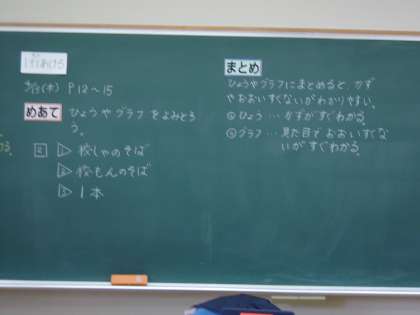 P 12〜15
めあて
ひょうや グラフ をよみとろ
う。
▷ 校しゃのそば
▷ 校もんのそば
▷ 1本
まとめ
ひょうやグラフにまとめると、かず
やおおいすくないがわかりやすい。
ひょう … かずがすぐわかる。
グラフ … 見た目でおおいすくな
いがすぐわかる。